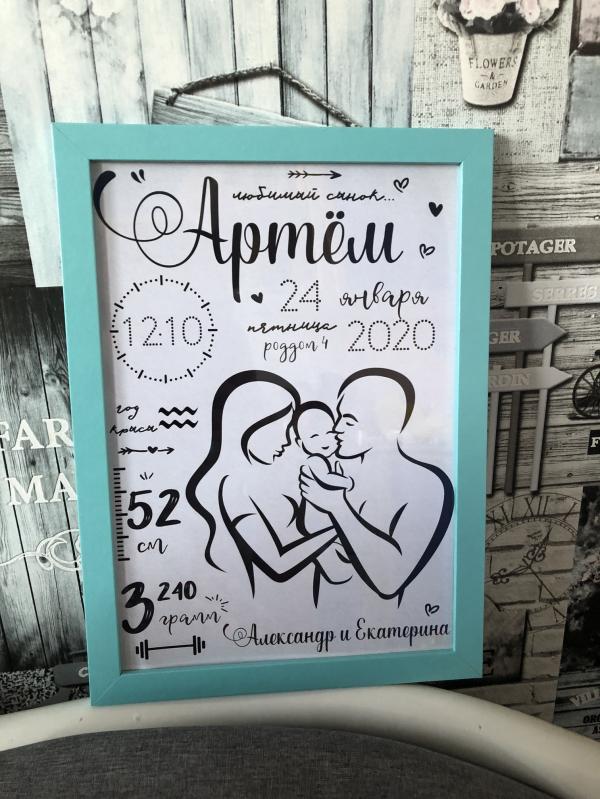 FLOWERS
&
GARDEN
любимый сынок...
Артём
24 января
пятница
роддом 4
2020
12:10
POTAGER
SERRES
год
крысы
FAR
MA
52
см
3 240
грамм
Александр и Екатерина